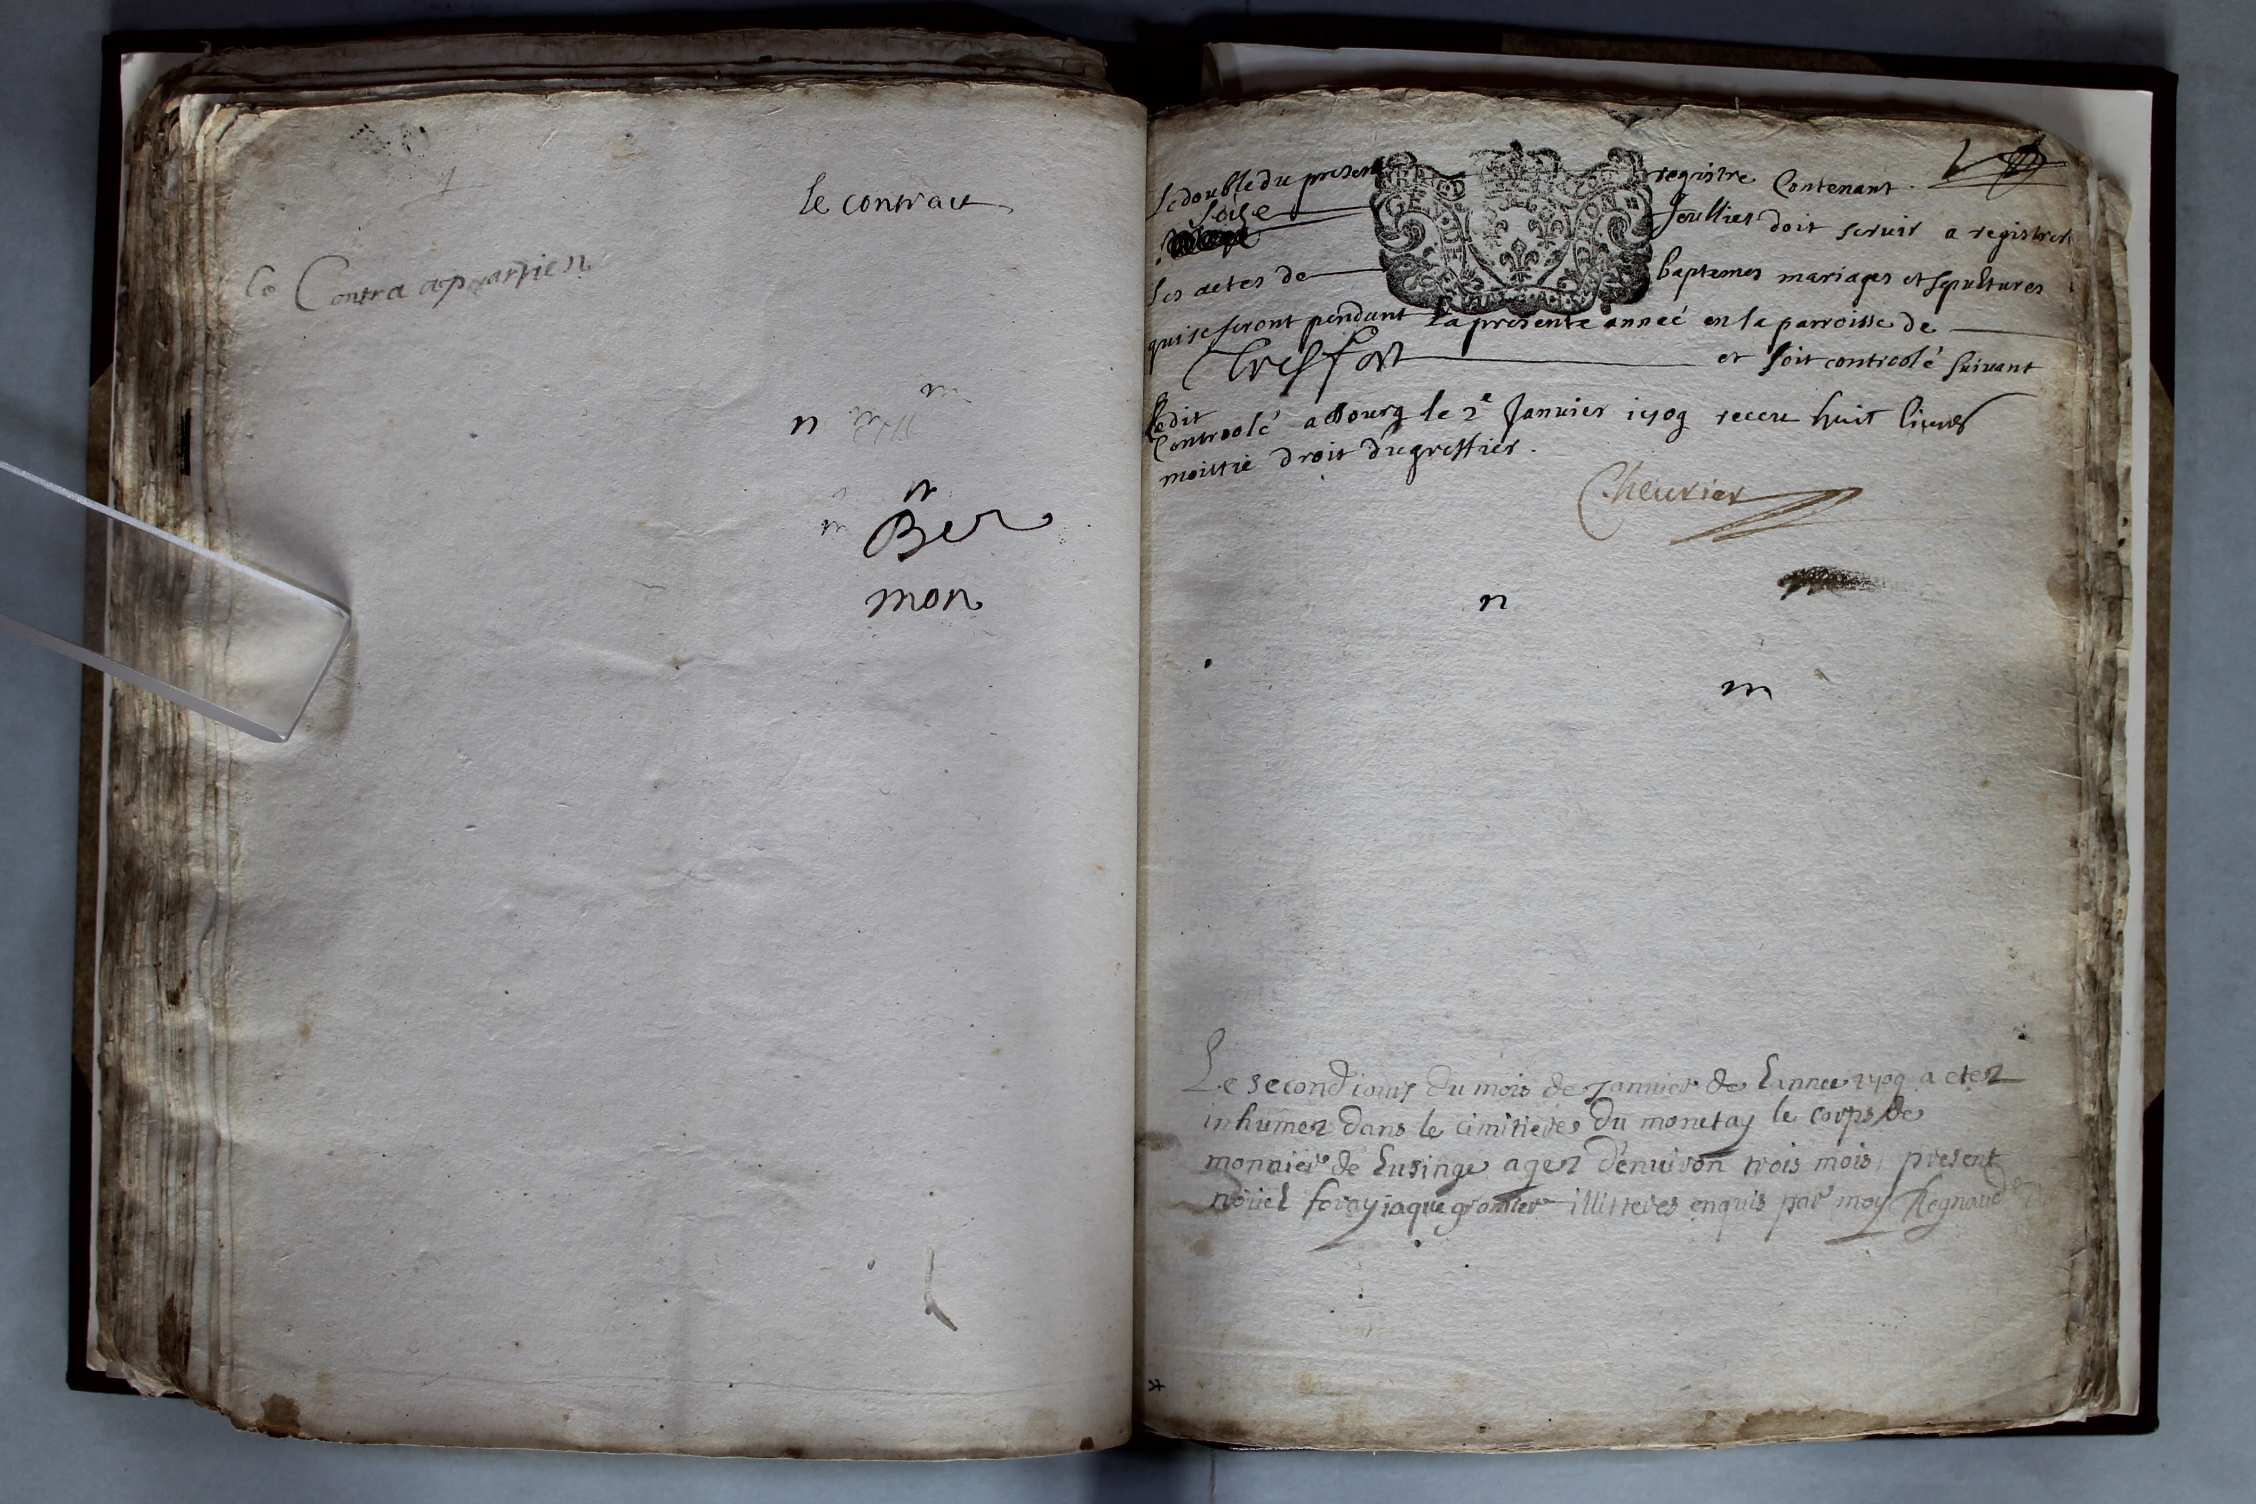 le contract
le Contra aprartien
m
n
n
m
Ber
mon
Le double du present registre Contenant
seize feullies doit servir a registrer
les actes de baptemes mariages et sepultures
qui se feront pendant la presente anneé en la parroisse de
Tresfort et soit controolé suivant
ledit
Controolé a Bourg le 2e Janvier 1709 receu huit livres
moittie droit du greffier.
Cheurier
n
m
Le second iour du mois de Janvier de Lannee 1709 a etez
inhumez dans le cimitieres du monetay le corps de
monnier de Lusinge agez denuiron trois mois present
nouel foray iaque gromier illitteres enquis par moy Regnaud